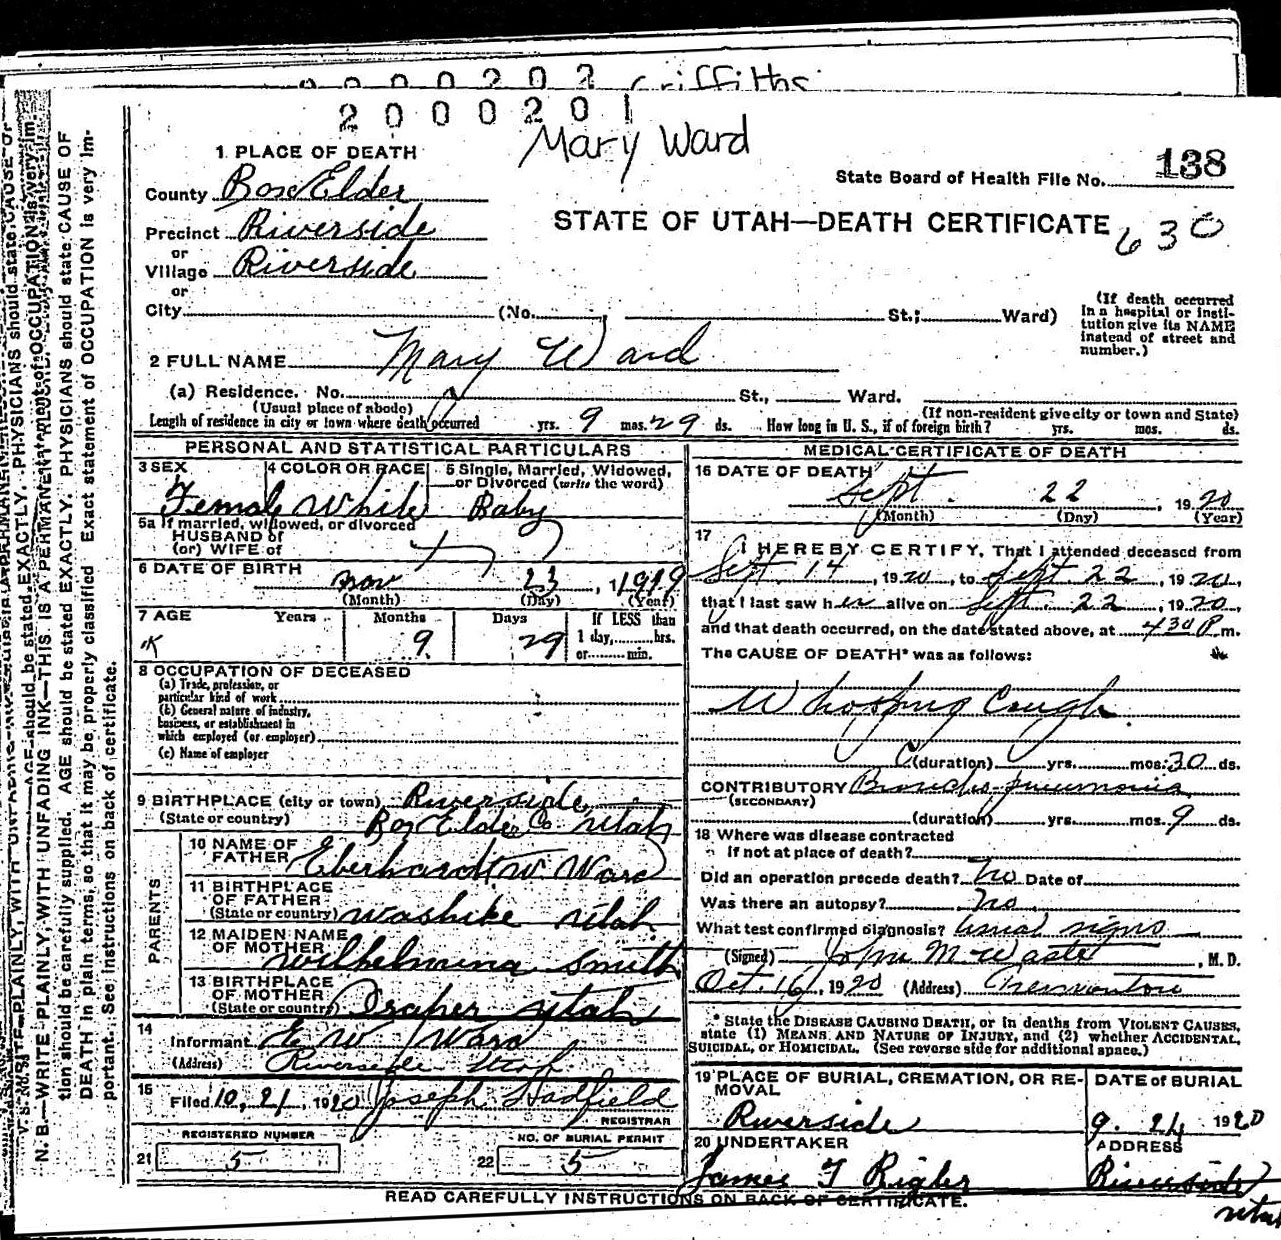 2000202 Griffiths
2000201
Mary Ward
1 PLACE OF DEATH
County Box Elder
State Board of Health File No. 138
Precinct Riverside
STATE OF UTAH—DEATH CERTIFICATE 630
or
Village Riverside
or
City (No. St.; Ward)
(If death occurred in a hospital or institution give its NAME instead of street and number.)
2 FULL NAME Mary Ward
(a) Residence. No. St., Ward.
(Usual place of abode) (If non-resident give city or town and State)
Length of residence in city or town where death occurred yrs. 9 mos. 29 ds. How long in U. S., if of foreign birth? yrs. mos. ds.
PERSONAL AND STATISTICAL PARTICULARS
3 SEX 4 COLOR OR RACE 5 Single, Married, Widowed, or Divorced (write the word)
Female White Baby
5a If married, widowed, or divorced
HUSBAND of
(or) WIFE of
6 DATE OF BIRTH
Nov 23, 1919
(Month) (Day) (Year)
7 AGE Years Months Days If LESS than
9 29 1 day, hrs.
or min.
8 OCCUPATION OF DECEASED
(a) Trade, profession, or
particular kind of work
(b) General nature of industry,
business, or establishment in
which employed (or employer)
(c) Name of employer
9 BIRTHPLACE (city or town) Riverside
(State or country) Box Elder Co Utah
PARENTS
10 NAME OF FATHER Eberhardt W Ward
11 BIRTHPLACE OF FATHER
(State or country) Washike Utah
12 MAIDEN NAME OF MOTHER Wilhelmina Smith
13 BIRTHPLACE OF MOTHER
(State or country) Draper Utah
14
Informant E W Ward
(Address) Riverside Utah
15
Filed 10, 21, 1920 Joseph Hadfield
REGISTRAR
REGISTERED NUMBER NO. OF BURIAL PERMIT
21 5 22 5
MEDICAL CERTIFICATE OF DEATH
16 DATE OF DEATH
Sept. 22, 1920
(Month) (Day) (Year)
17
I HEREBY CERTIFY, That I attended deceased from
Sept. 14, 1920, to Sept. 22, 1920,
that I last saw her alive on Sept. 22, 1920,
and that death occurred, on the date stated above, at 430 P m.
The CAUSE OF DEATH* was as follows:
Whooping Cough
(duration) yrs. mos. 30 ds.
CONTRIBUTORY Broncho-pneumonia
(SECONDARY)
(duration) yrs. mos. 9 ds.
18 Where was disease contracted
if not at place of death?
Did an operation precede death? No Date of
Was there an autopsy? No
What test confirmed diagnosis? Usual signs
(Signed) John M. Waste, M. D.
Oct. 16, 1920 (Address) Tremonton
* State the DISEASE CAUSING DEATH, or in deaths from VIOLENT CAUSES,
state (1) MEANS AND NATURE OF INJURY, and (2) whether ACCIDENTAL,
SUICIDAL, or HOMICIDAL. (See reverse side for additional space.)
19 PLACE OF BURIAL, CREMATION, OR REMOVAL DATE of BURIAL
Riverside 9. 24 1920
20 UNDERTAKER ADDRESS
James T Rigler Riverside
Utah
READ CAREFULLY INSTRUCTIONS ON BACK OF CERTIFICATE.
N. B.—WRITE PLAINLY, WITH UNFADING INK—THIS IS A PERMANENT
tion should be carefully supplied. AGE should be stated EXACTLY. PHYSICIANS should state CAUSE OF
DEATH in plain terms, so that it may be properly classified. Exact statement of OCCUPATION is very im-
portant. See instructions on back of certificate.